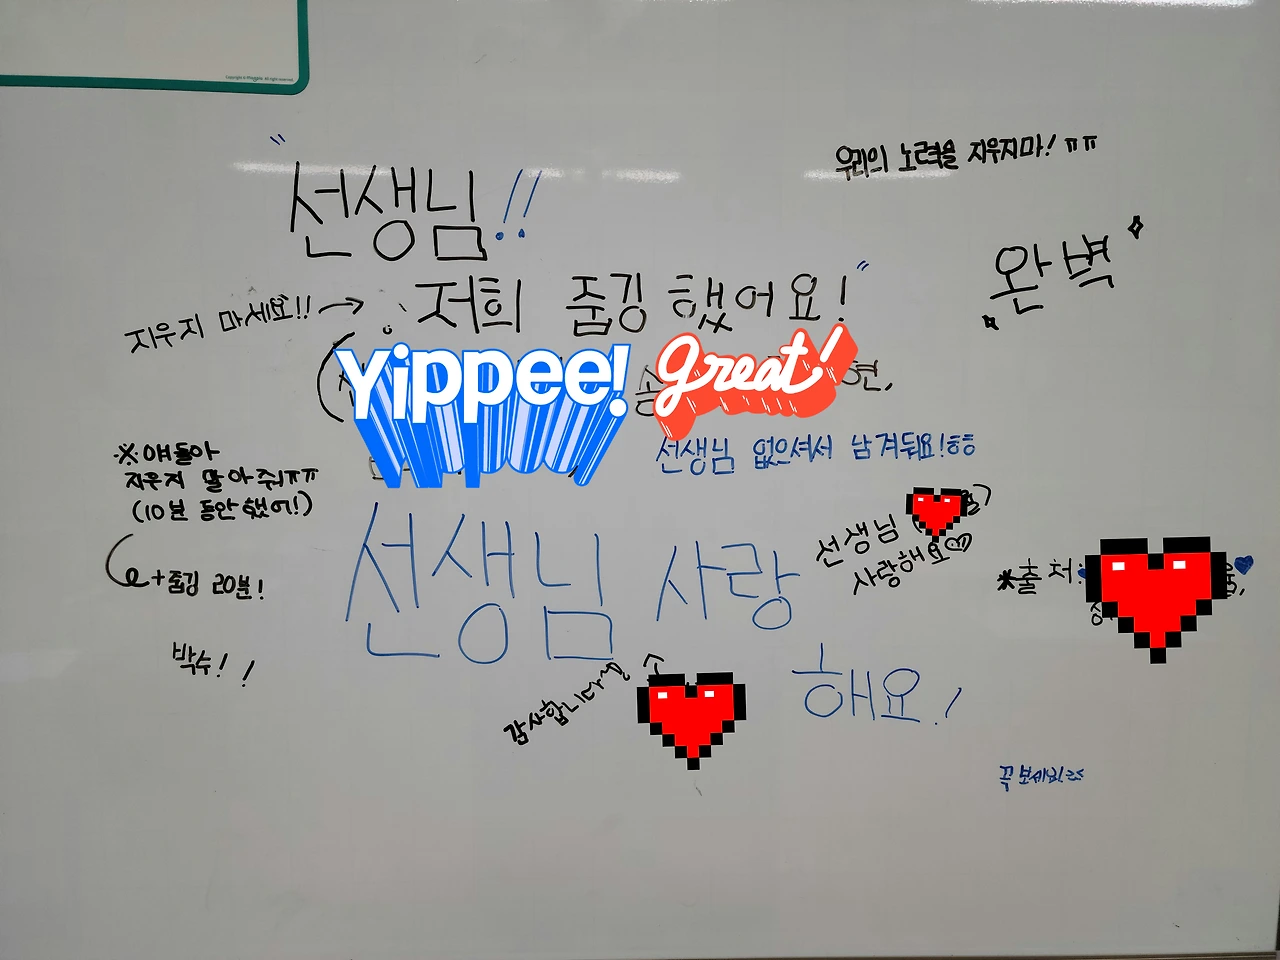 "선생님!!
저희 줌깅 했어요!"
지우지 마세요!! →
우리의 노력을 지우지마! ㅠㅠ
완벽
Yippee! great!
선생님 없으셔서 남겨둬요!ㅎㅎ
※ 얘들아
지우지 말아줘ㅠㅠ
(10분 동안 했어!)
+줌깅 20분!
박수! !
선생님 사랑
해요!
선생님
사랑해요♡
※출처:
감사합니다
꼭 보세요!